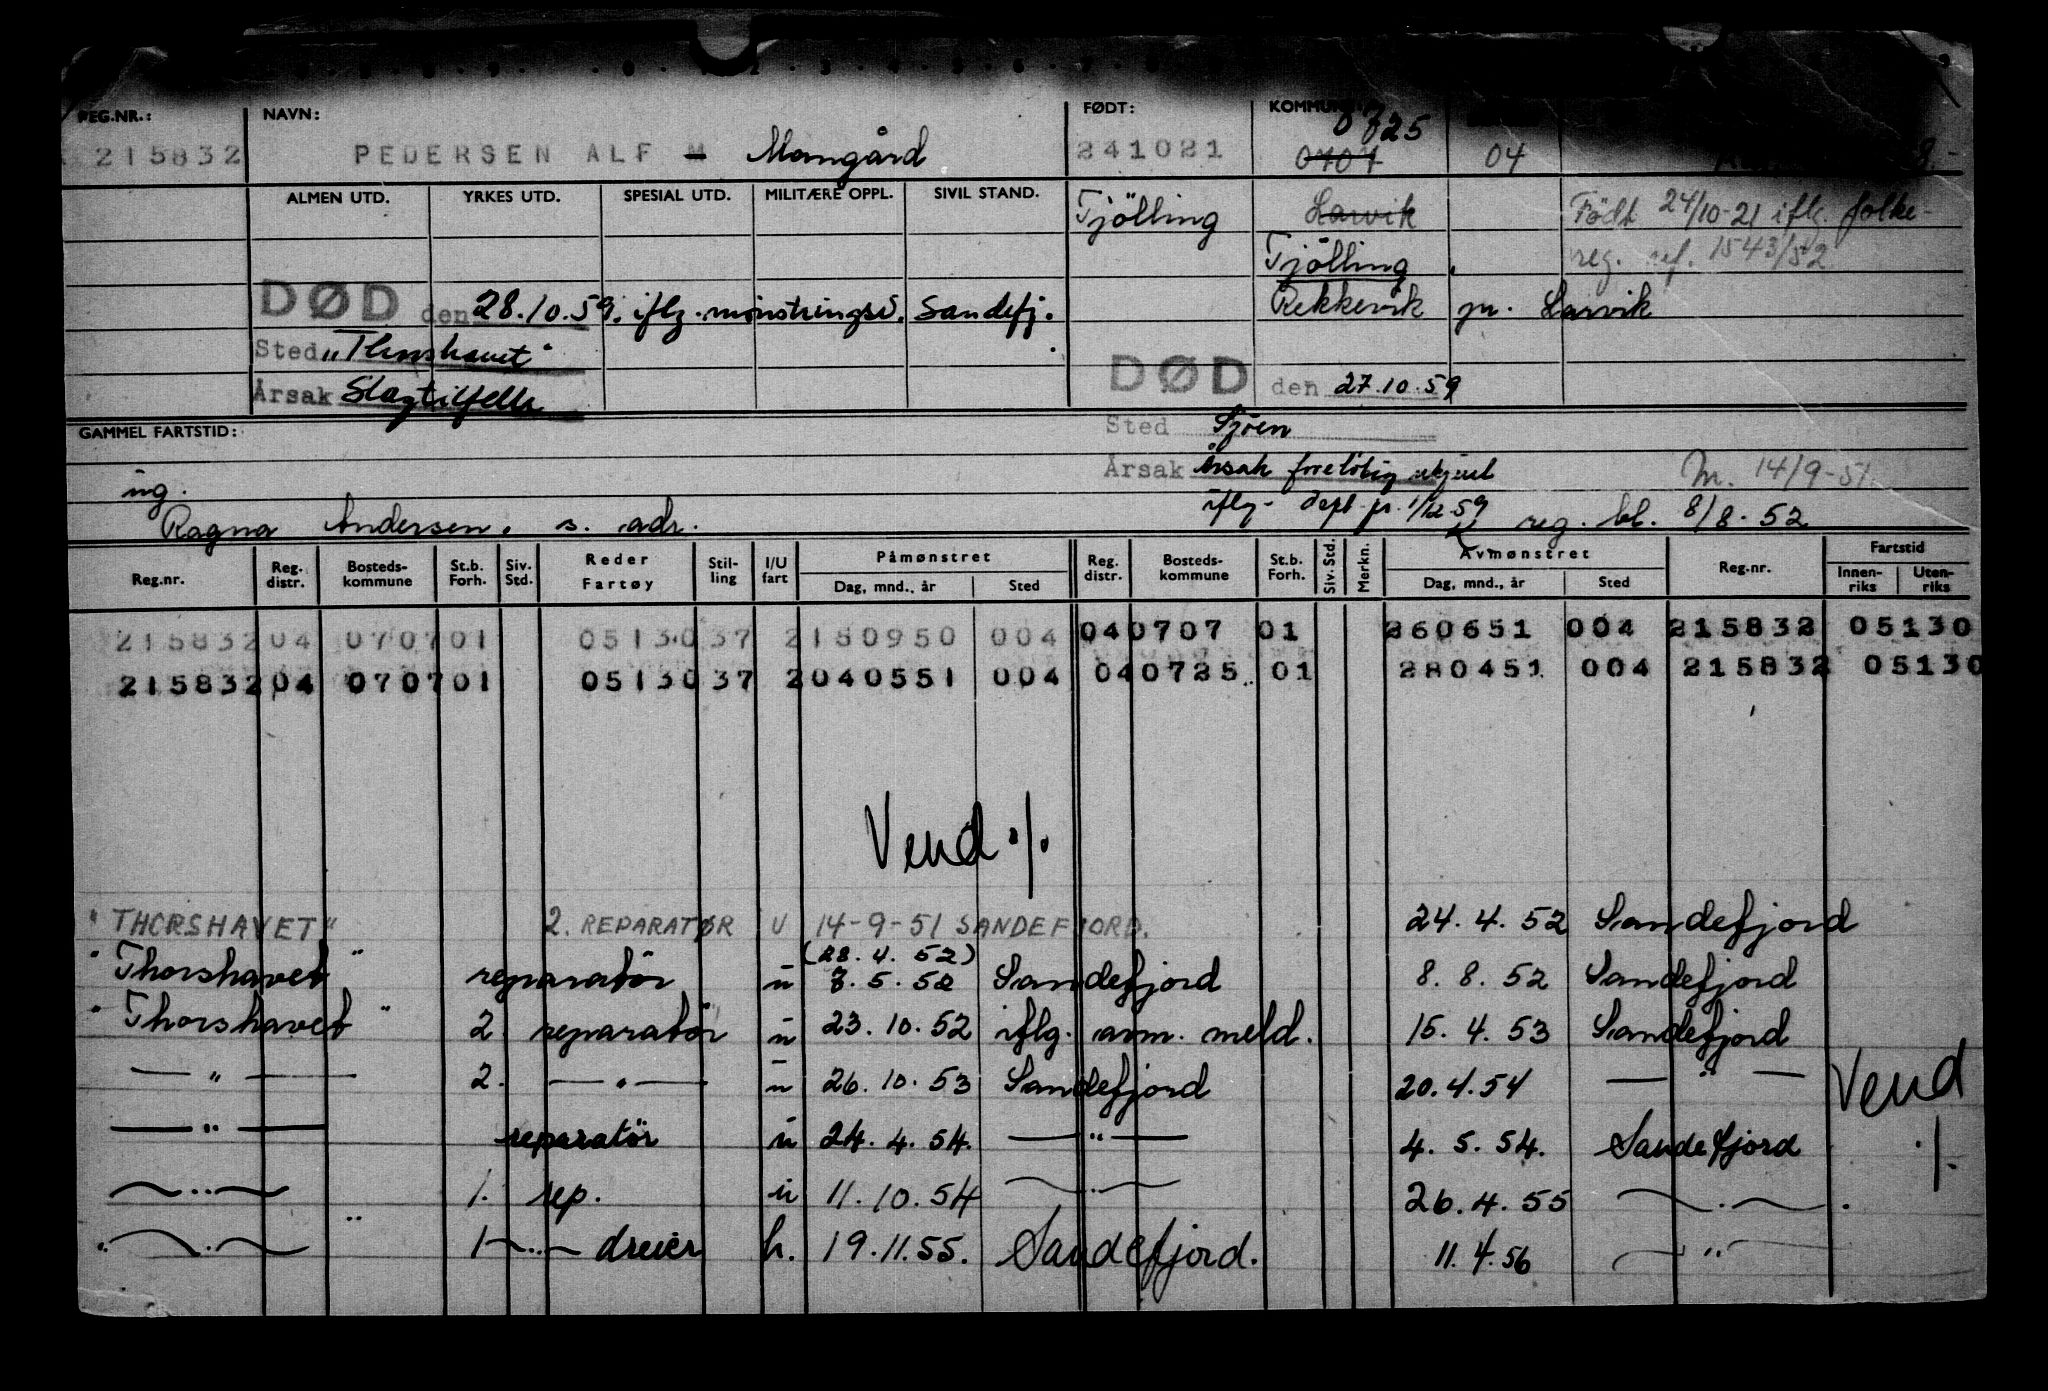 REG.NR.: NAVN: FØDT: KOMMUNE
215832 PEDERSEN ALF M Momgård 241021 0707 0725 04
ALMEN UTD. YRKES UTD. SPESIAL UTD. MILITÆRE OPPL. SIVIL STAND. Tjölling Larvik Født 24/10-21 iflg. folke-
Tjölling reg. ref. 1543/52
DØD den 28.10.59. iflg. mønstringsv. Sandefj. Rekkevik pr. Larvik
Sted "Thorshavet"
Årsak Slagtilfelle
DØD den 27.10.59
GAMMEL FARTSTID: Sted Sjøen
Årsak årsak foreløbig ukjent M. 14/9-51
ug. iflg. dept. pr. 1/12-59
Ragna Andersen. s. adr. reg. bl. 8/8-52
Reg.nr. Reg. distr. Bosteds-kommune St.b. Forh. Siv. Std. Reder Fartøy Stil-ling I/U fart Påmønstret Dag, mnd., år Sted Reg. distr. Bosteds-kommune St.b. Forh. Siv. Std. Merkn. Avmønstret Dag, mnd., år Sted Reg.nr. Fartstid Innen-riks Uten-riks
215832 04 0707 01 05130 37 2 150950 004 04 0707 01 260651 004 215832 05130
215832 04 0707 01 05130 37 2 040551 004 04 0725 01 280451 004 215832 05130
Vend ./.
"THORSHAVET" 2. REPARATØR U 14-9-51 SANDEFJORD. 24.4.52 Sandefjord
(28.4.52)
"Thorshavet" reparatör u 7.5.52 Sandefjord 8.8.52 Sandefjord
"Thorshavet" 2 reparatör u 23.10.52 iflg. avm. meld. 15.4.53 Sandefjord
—"— 2. —"— u 26.10.53 Sandefjord 20.4.54 —"— Vend ./.
—"— reparatör u 24.4.54. —"— 4.5.54. Sandefjord
—"— 1. rep. u 11.10.54 —"— 26.4.55 —"—
—"— 1 —"— dreier h. 19.11.55. Sandefjord. 11.4.56 —"—